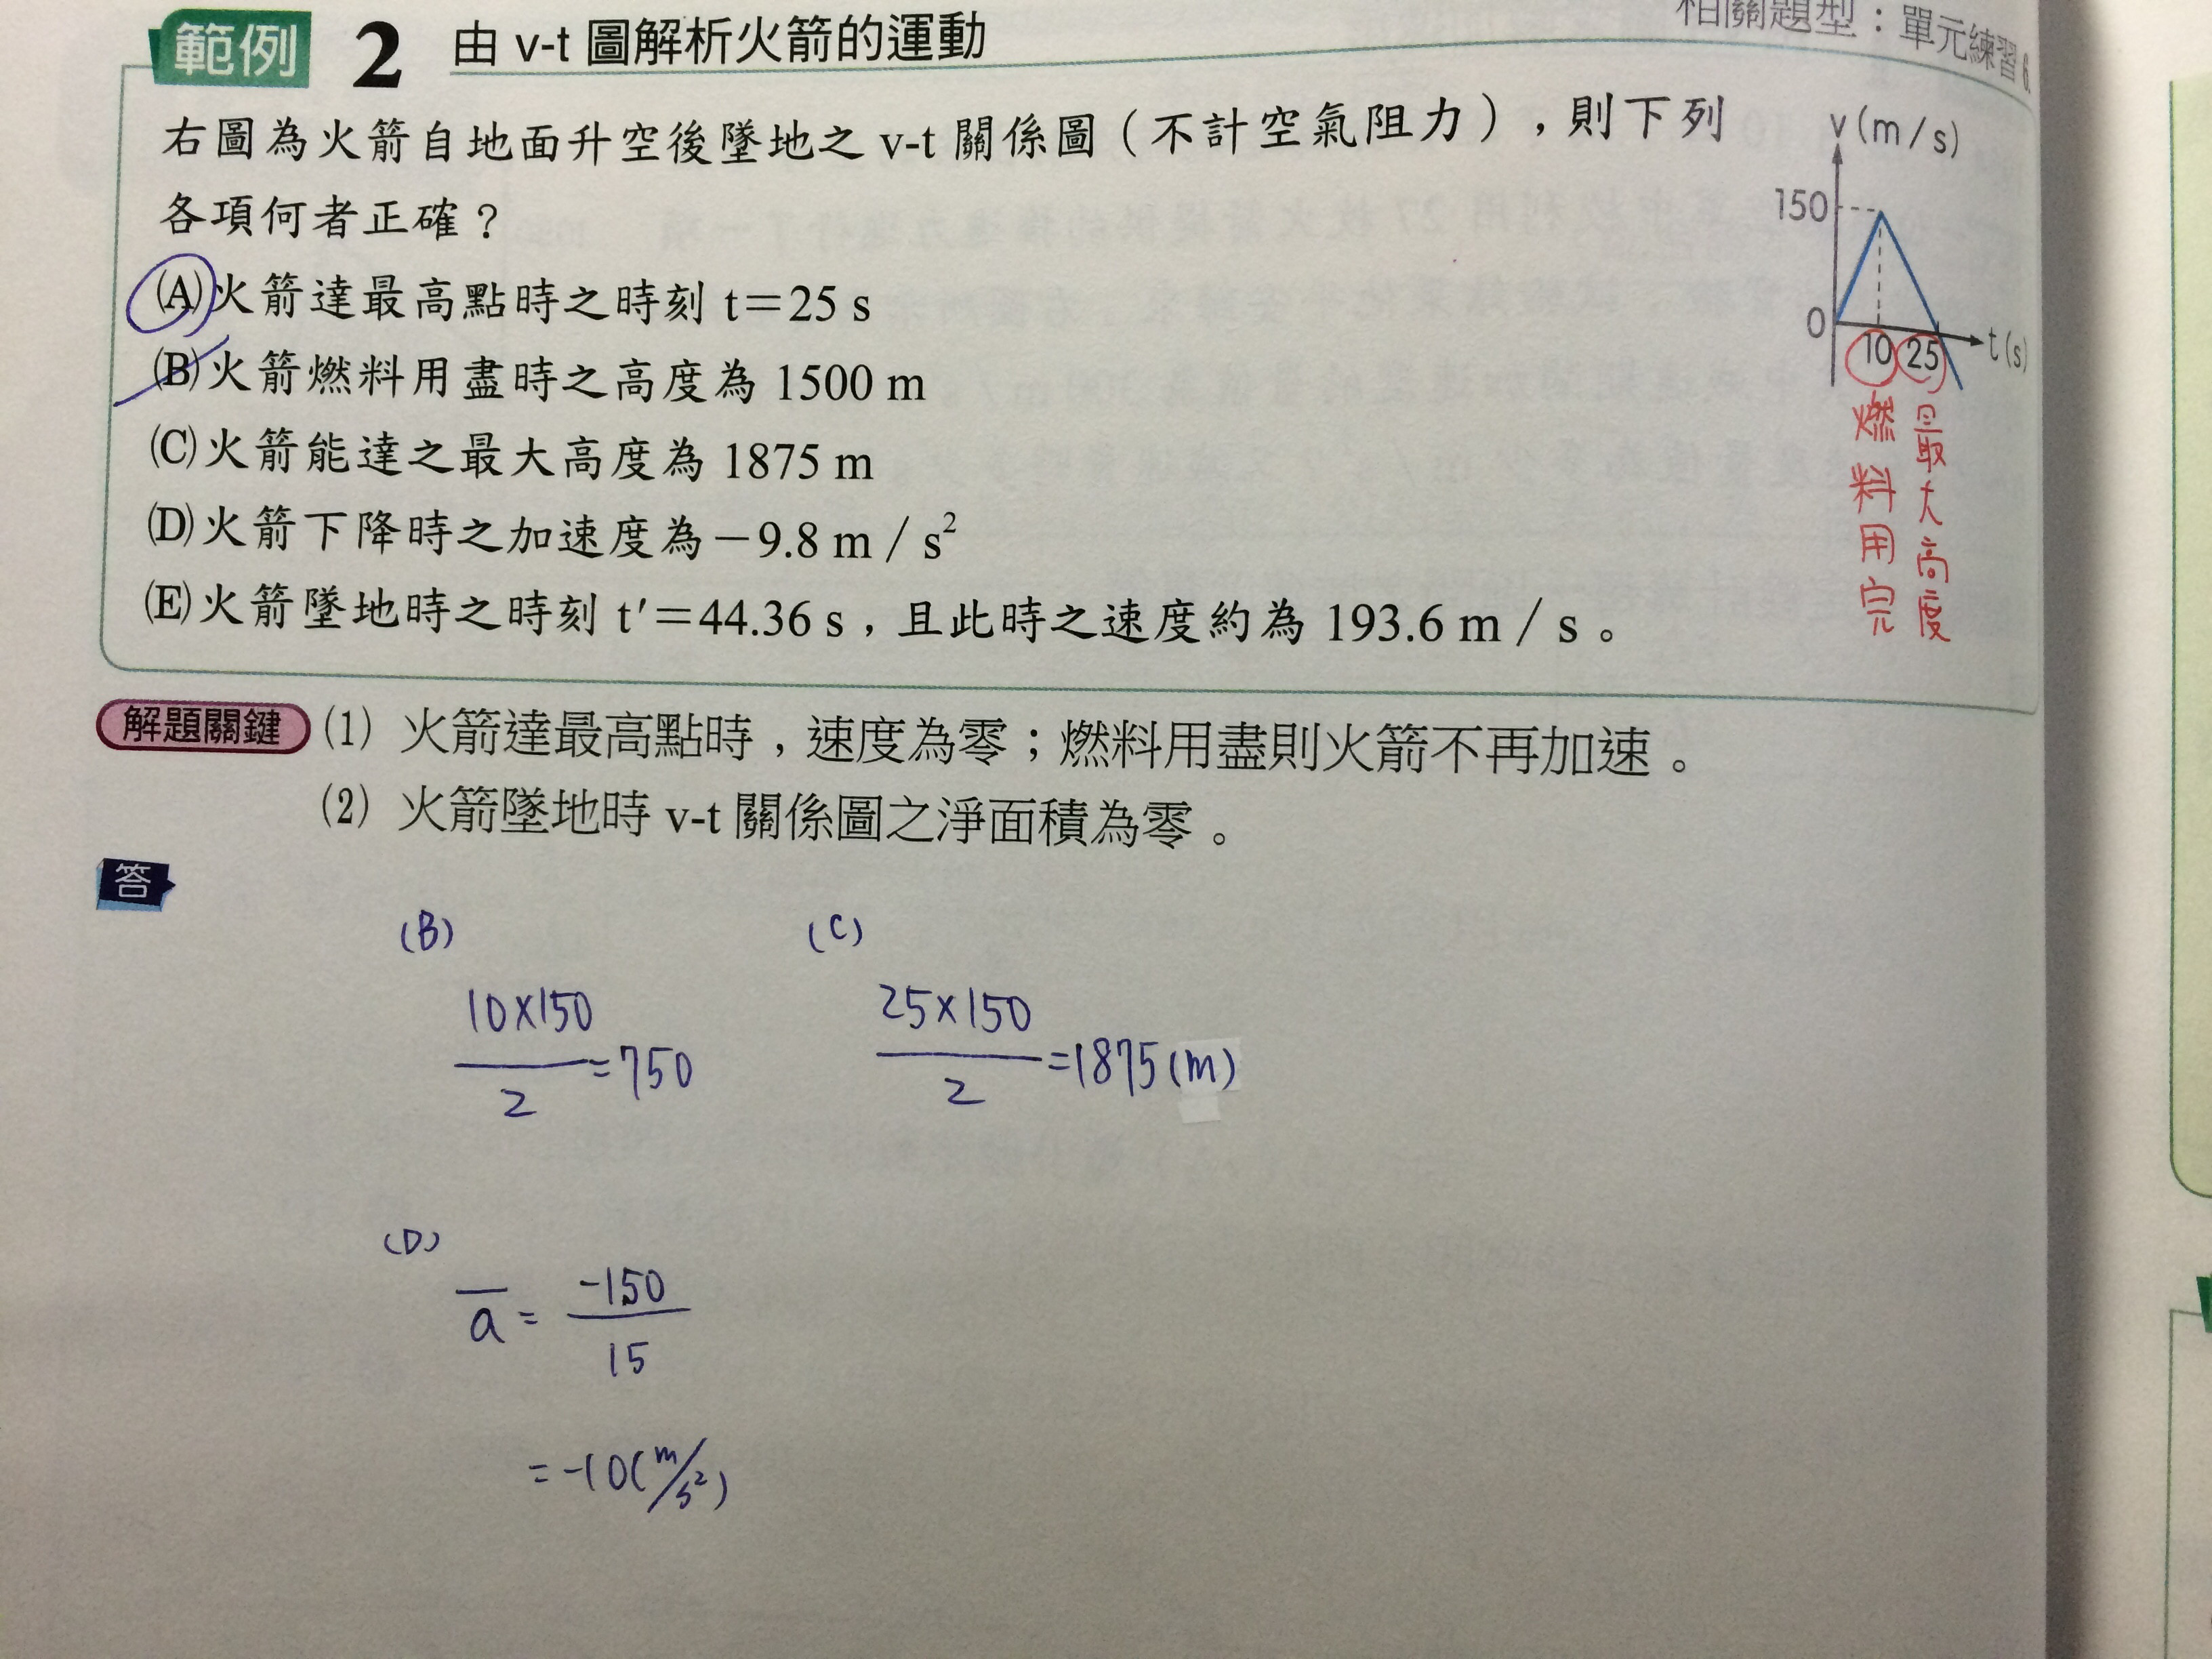 相關題型：單元練習6
範例 2 由 v-t 圖解析火箭的運動
右圖為火箭自地面升空後墜地之 v-t 關係圖（不計空氣阻力），則下列
各項何者正確？
(A)火箭達最高點時之時刻 t＝25 s
(B)火箭燃料用盡時之高度為 1500 m
(C)火箭能達之最大高度為 1875 m
(D)火箭下降時之加速度為－9.8 m／s²
(E)火箭墜地時之時刻 t′＝44.36 s，且此時之速度約為 193.6 m／s。
v(m/s)
150
0
10
25
t(s)
燃料用完
最大高度
解題關鍵 (1) 火箭達最高點時，速度為零；燃料用盡則火箭不再加速。
(2) 火箭墜地時 v-t 關係圖之淨面積為零。
答
(B)
10×150
2
=750
(C)
25×150
2
=1875(m)
(D)
a̅ = -150
15
= -10(m/s²)